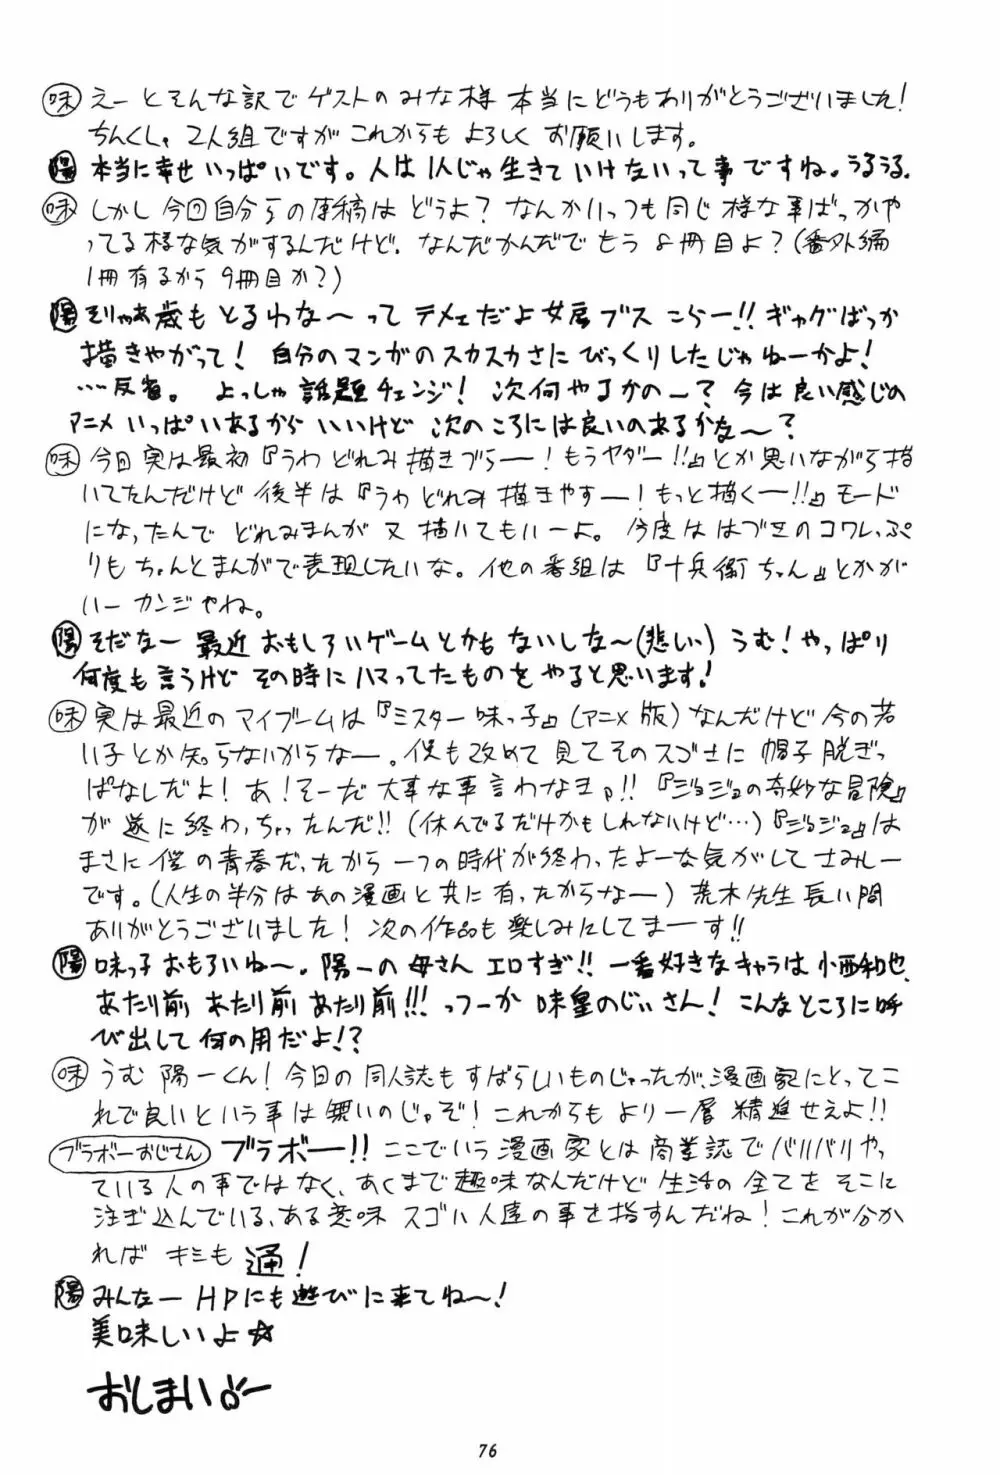 味 えーとそんな訳でゲストのみな様 本当にどうもありがとうございました!
ちんくしゃ2人組ですがこれからもよろしくお願いします。
陽 本当に幸せいっぱいです。人は1人じゃ生きていけないって事ですね。うるうる。
味 しかし今回自分らの原稿はどうよ?なんかいっつも同じ様な事ばっかや
ってる様な気がするんだけど。なんだかんだでもう8冊目よ?(番外編
1冊有るから9冊目か?)
陽 そりゃあ歳もとるわな〜ってテメェだよ女房ブスこらー!!ギャグばっか
描きやがって!自分のマンガのスカスカさにびっくりしたじゃねーかよ!
…反省。よっしゃ話題チェンジ!次何やるかの〜?今は良い感じの
アニメいっぱいあるからいいけど次のころには良いのあるかな〜?
味 今回実は最初『うわどれみ描きづらー!もうヤダー!!』とか思いながら描
いてたんだけど後半は『うわどれみ描きやすー!もっと描くー!!』モード
になったんでどれみまんが又描いてもいーよ。今度ははづきのコワレっぷ
りもちゃんとまんがで表現したいな。他の番組は『十兵衛ちゃん』とかが
いーカンジやね。
陽 そだなー最近おもしろいゲームとかもないしな〜(悲しい)うむ!やっぱり
何度も言うけどその時にハマってたものをやると思います!
味 実は最近のマイブームは『ミスター味っ子』(アニメ版)なんだけど今の若
い子とか知らないからなー。俺も改めて見てそのスゴさに帽子脱ぎっ
ぱなしだよ!あ!そーだ大事な事言わなきゃ!!『ジョジョの奇妙な冒険』
が遂に終わっちゃったんだ!!(休んでるだけかもしれないけど…)『ジョジョ』は
まさに僕の青春だったから一つの時代が終わったよーな気がしてさみしー
です。(人生の半分はあの漫画と共に有ったからなー)荒木先生長い間
ありがとうございました!次の作品も楽しみにしてまーす!!
陽 味っ子おもろいね〜。陽一の母さんエロすぎ!!一番好きなキャラは小西和也、
あたり前あたり前あたり前!!!っつーか味皇のじぃさん!こんなところに呼
び出して何の用だよ!?
味 うむ陽一くん!今日の同人誌もすばらしいものじゃったが、漫画家にとってこ
れで良いという事は無いのじゃぞ!これからもより一層精進せえよ!!
ブラボーおじさん ブラボー!!ここでいう漫画家とは商業誌でバリバリやっ
ている人の事ではなく、あくまで趣味なんだけど生活の全てをそこに
注ぎ込んでいる、ある意味スゴい人達の事を指すんだね!これが分か
ればキミも通!
陽 みんなーHPにも遊びに来てね〜!
美味しいよ☆
おしまい
76